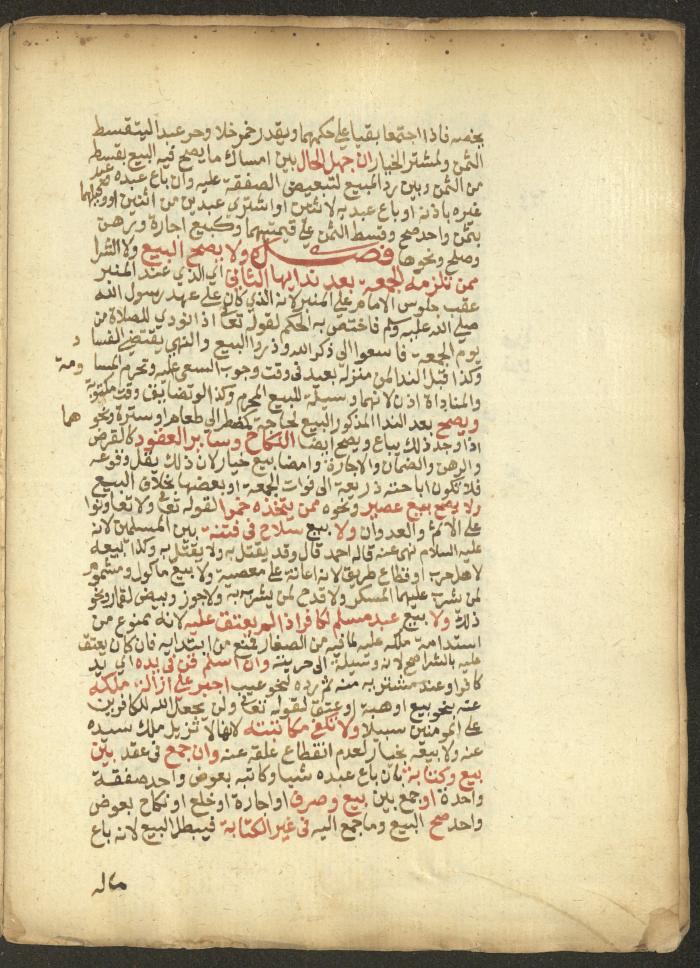 يخصه فاذا اجتمعا بقيا على حكمهما ويقدر خمر خلا وحر عبد اليتقسط
الثمن ولمشتر الخيار ان جهل الحال بين امساك ما يصح فيه البيع بقسطه
من الثمن وبين رد المبيع لتبعيض الصفقة عليه وان باع عبده وعبد
غيره باذنه او باع عبديه لاثنين او اشترى عبدين من اثنين او وكيلهما
بثمن واحد صح وقسط الثمن على قيمتيهما وكبيع اجارة ورهن
وصلح ونحوها فصل ولا يصح البيع ولا الشرا
ممن تلزمه الجمعة بعد ندايها الثاني اي الذي عند المنبر
عقب جلوس الامام على المنبر لانه الذي كان على عهد رسول الله
صلى الله عليه وسلم فاختص به الحكم لقوله تعالى اذا نودي للصلاة من
يوم الجمعة فاسعوا الى ذكر الله وذروا البيع والنهي يقتضي الفساد
وكذا قبل الندا لمن منزله بعيد في وقت وجوب السعي عليه وتحرم المساومة
والمناداة اذن لانهما وسيلة للبيع المحرم وكذا لو تضايق وقت مكتوبة
ويصح بعد الندا المذكور البيع لحاجة كمضطر الى طعام او سترة ونحوهما
اذا وجد ذلك يباع ويصح ايضا النكاح وساير العقود كالقرض
والرهن والضمان والاجارة وامضا بيع خيار لان ذلك يقل وقوعه
فلا تكون اباحته ذريعة الى فوات الجمعة او بعضها بخلاف البيع
ولا يصح بيع عصير ونحوه ممن يتخذه خمرا لقوله تعالى ولا تعاونوا
على الاثم والعدوان ولا بيع سلاح في فتنة بين المسلمين لانه
عليه السلام نهى عنه قاله احمد قال وقد يقتل به ولا يقتل به وكذا بيعه
لاهل حرب او قطاع طريق لانه اعانة على معصية ولا بيع ماكول ومشموم
لمن يشرب عليهما المسكر ولا قدح لمن يشرب به ولا جوز وبيض لقمار ونحو
ذلك ولا بيع عبد مسلم لكافر اذا لم يعتق عليه لانه ممنوع من
استدامة ملكه عليه لما فيه من الصغار فمنع من ابتدايه فان كان يعتق
عليه بالشرا صح لانه وسيلة الى حريته وان اسلم قن في يده اي يد
كافر او عند مشتريه منه ثم رده لنحو عيب اجبر على ازالة ملكه
عنه بنحو بيع او هبة او عتق لقوله تعالى ولن يجعل الله للكافرين
على المومنين سبيلا ولا تكفي مكاتبته لانها لا تزيل ملك سيده
عنه ولا بيعه بخيار لعدم انقطاع علقه عنه وان جمع في عقد بين
بيع وكتابة بان باع عبده شيا وكاتبه بعوض واحد صفقة
واحدة او جمع بين بيع وصرف او اجارة او خلع او نكاح بعوض
واحد صح البيع وما جمع اليه في غير الكتابة فيبطل البيع لانه باع
ماله